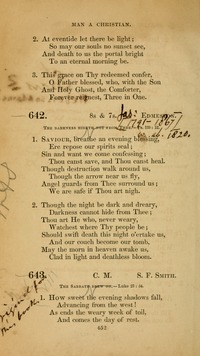 MAN A CHRISTIAN.
2. At eventide let there be light;
So may our souls no sunset see,
And death to us the portal bright
To an eternal morning be.
3. This grace on Thy redeemed confer,
O Father blessed, who, with the Son
And Holy Ghost, the Comforter,
Forever reignest, Three in One.
642. 8s & 7s. EDMESTON.
1820.
1. SAVIOUR, breathe an evening blessing,
Ere repose our spirits seal;
Sin and want we come confessing;
Thou canst save, and Thou canst heal.
Though destruction walk around us,
Though the arrow near us fly,
Angel guards from Thee surround us;
We are safe if Thou art nigh.
2. Though the night be dark and dreary,
Darkness cannot hide from Thee;
Thou art He who, never weary,
Watchest where Thy people be;
Should swift death this night o'ertake us,
And our couch become our tomb,
May the morn in heaven awake us,
Clad in light and deathless bloom.
643. C. M. S. F. SMITH.
THE SABBATH —Luke 23: 54.
1. How sweet the evening shadows fall,
Advancing from the west!
As ends the weary week of toil,
And comes the day of rest.
452